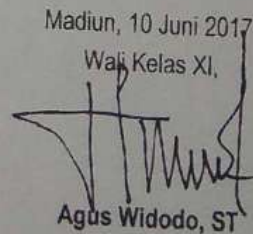 Madiun, 10 Juni 2017
Wali Kelas XI,
Agus Widodo, ST